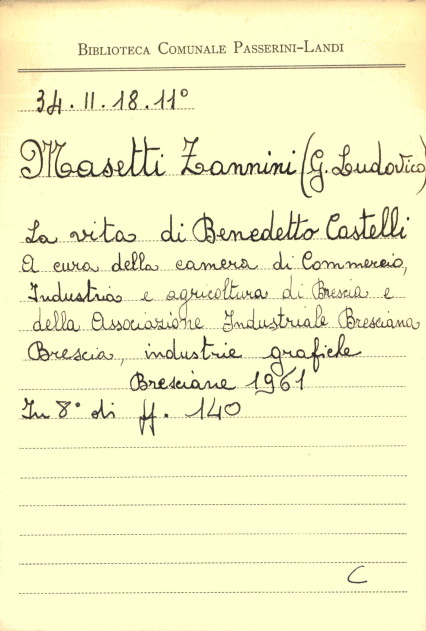 BIBLIOTECA COMUNALE PASSERINI-LANDI
34.II.18.11°
Masetti Zannini (G. Ludovico)
La vita di Benedetto Castelli
A cura della camera di Commercio,
Industria e agricoltura di Brescia e
della Associazione Industriale Bresciana
Brescia, industrie grafiche
Bresciane 1961
In 8° di ff. 140
C